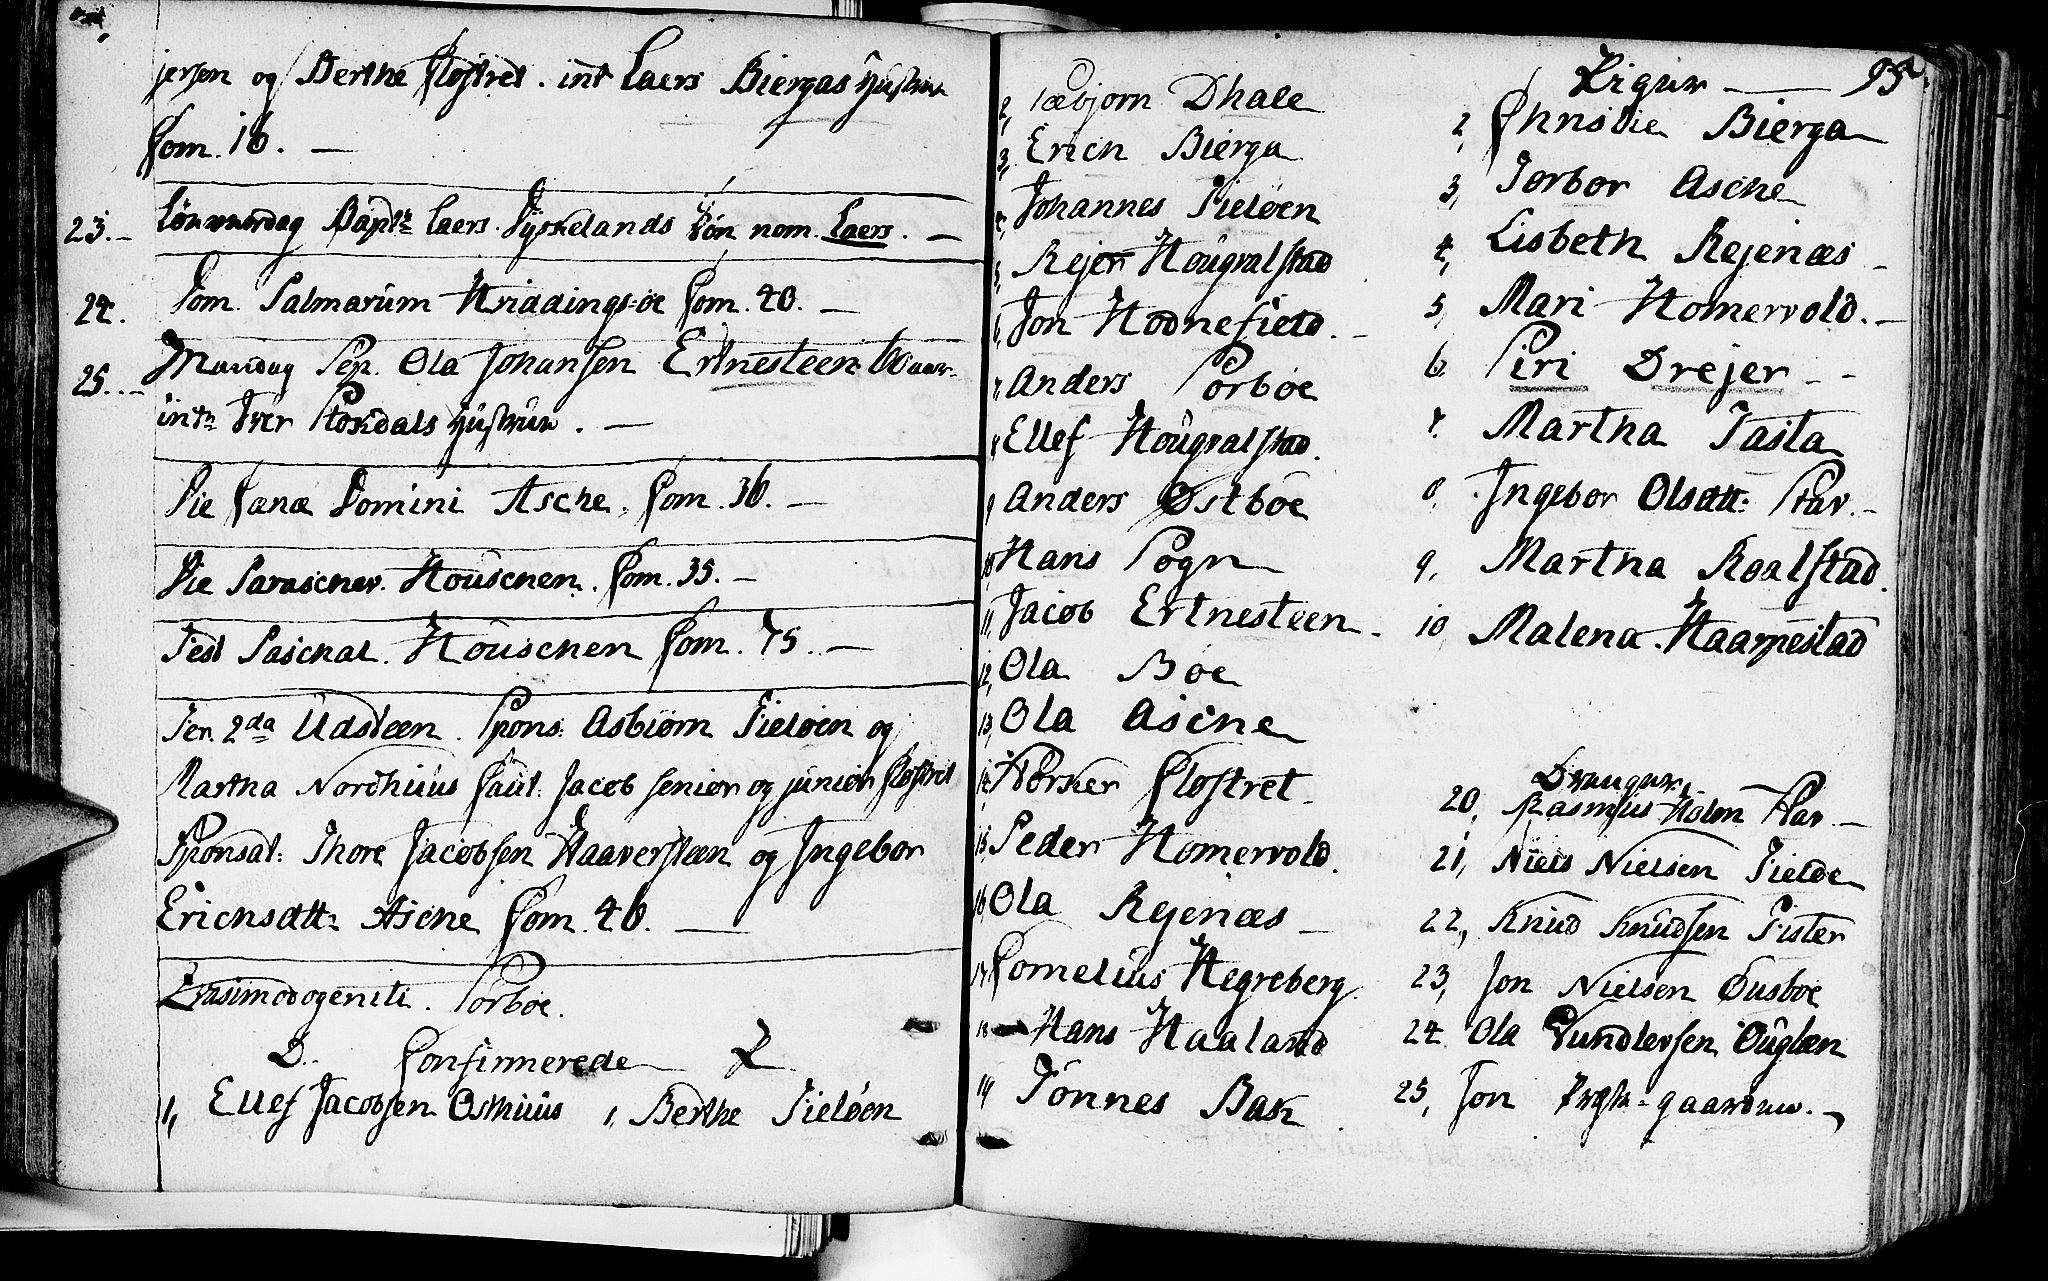 jersen og Berthe Clostret. int Laers Biergas Hustrue
Com. 16. —
23. Lönverdag Bapt: Laers Tyskelands Sön nom. Laers. —
24. Dom. Palmarum Hviddings-öe Com. 40. —
25. Mandag Sep. Ola Johansen Ertnesteen
int: Iver Stokdals Hustrue. —
Die Cænæ Domini Asche. Com. 36. —
Die Paraschev. Houschen. Com. 35. —
Fest Paschal. Houschen Com. 75. —
Fer. 2da Udsteen. Spons: Asbiørn Fieløen og
Martha Nordhuus Caut: Jacob senior og junior Closter
Sponsal: Thore Jacobsen Haaversteen og Ingebor
Erichsdtt: Asche Com. 46. —
Qvasimodogeniti. Sørbøe.
D. Confirmerede
1, Ellef Jacobsen Asthuus 1, Berthe Fieløen
95
2, Tæbjorn Dhale
3, Erich Bierga
4, Johannes Fieløen
5, Rejer Hougvalstad
6, Jon Hodnefield. —
7, Anders Sørbøe
8, Ellef Hougvalstad.
9, Anders Østbøe
10, Hans Sogn
11, Jacob Ertnesteen
12, Ola Bøe
13, Ola Asche
14, Clostret
15, Peder Homervold.
16, Ola Rejenæs —
17, Cornelius Hegreberg.
18, Hans Haaland
19, Tönnes Bak
Pigur —
2, Christie Bierga
3, Torbor Asche
4, Lisbeth Rejenæs —
5, Mari Homervold. —
6, Siri Drejer - -
7, Martha Tasta
8, Ingebor Olsdtt: Stav. —
9, Martha Roalstad.
10, Malena Haarnestad
Drenger
20, Rasmus Holm Stav. —
21, Niels Nielsen Fielde
22, Knud Knudsen Fister
23, Jon Nielsen Dusbøe
24 Ola Gundlersen Ouglæn
25, Jon